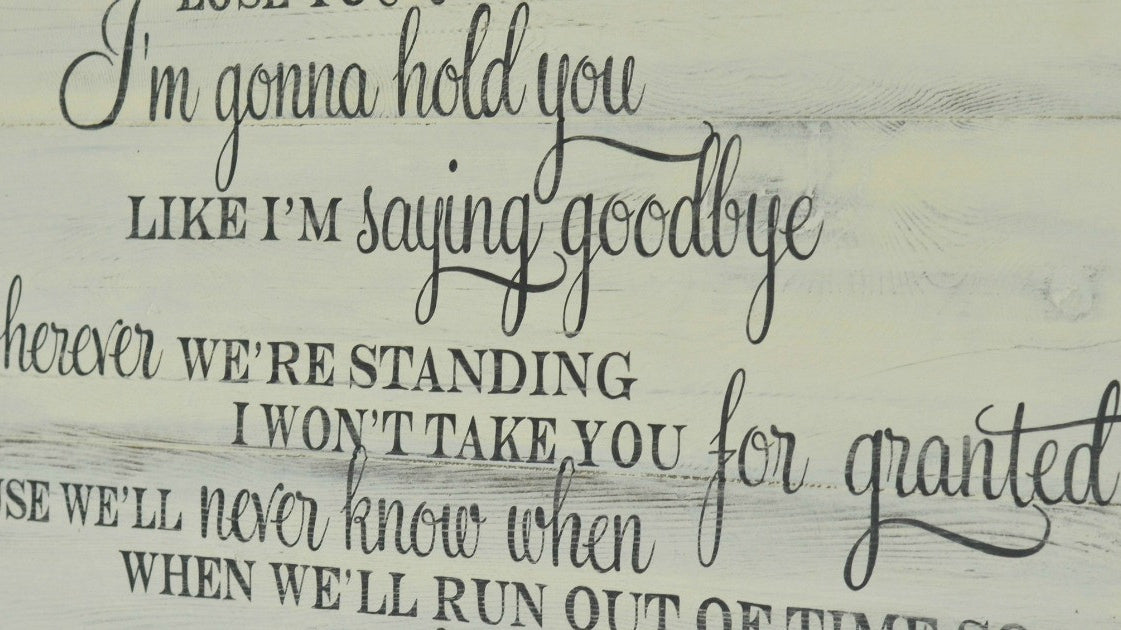 I'm gonna hold you
LIKE I'M saying goodbye
herever WE'RE STANDING
I WON'T TAKE YOU for granted
USE WE'LL never know when
WHEN WE'LL RUN OUT OF TIME SO